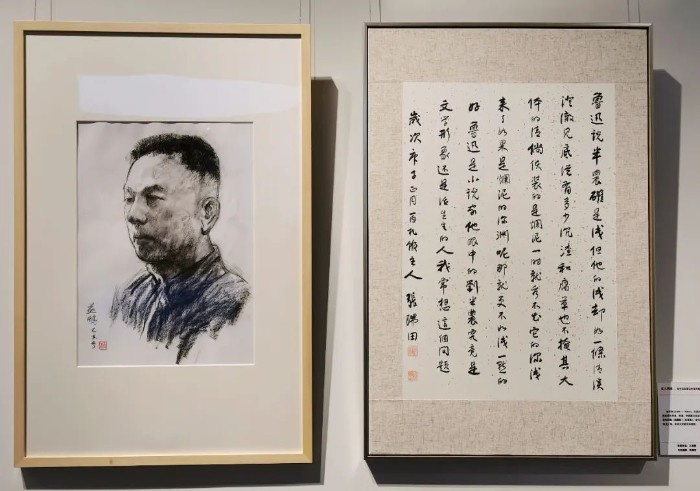 魯迅说半農確是浅但他的浅却如一條清溪
澄澈见底縱有多少沉渣和腐草也不掩其大
体的清倘使装的是爛泥一时就看不出它的深浅
来了如果是爛泥的深渊呢那就更不如浅一點的
好 魯迅是小说家他眼中的劉半農究竟是
文学形象还是活生生的人我常想這個问题
歲次庚子正月百札館主人 張瑞田